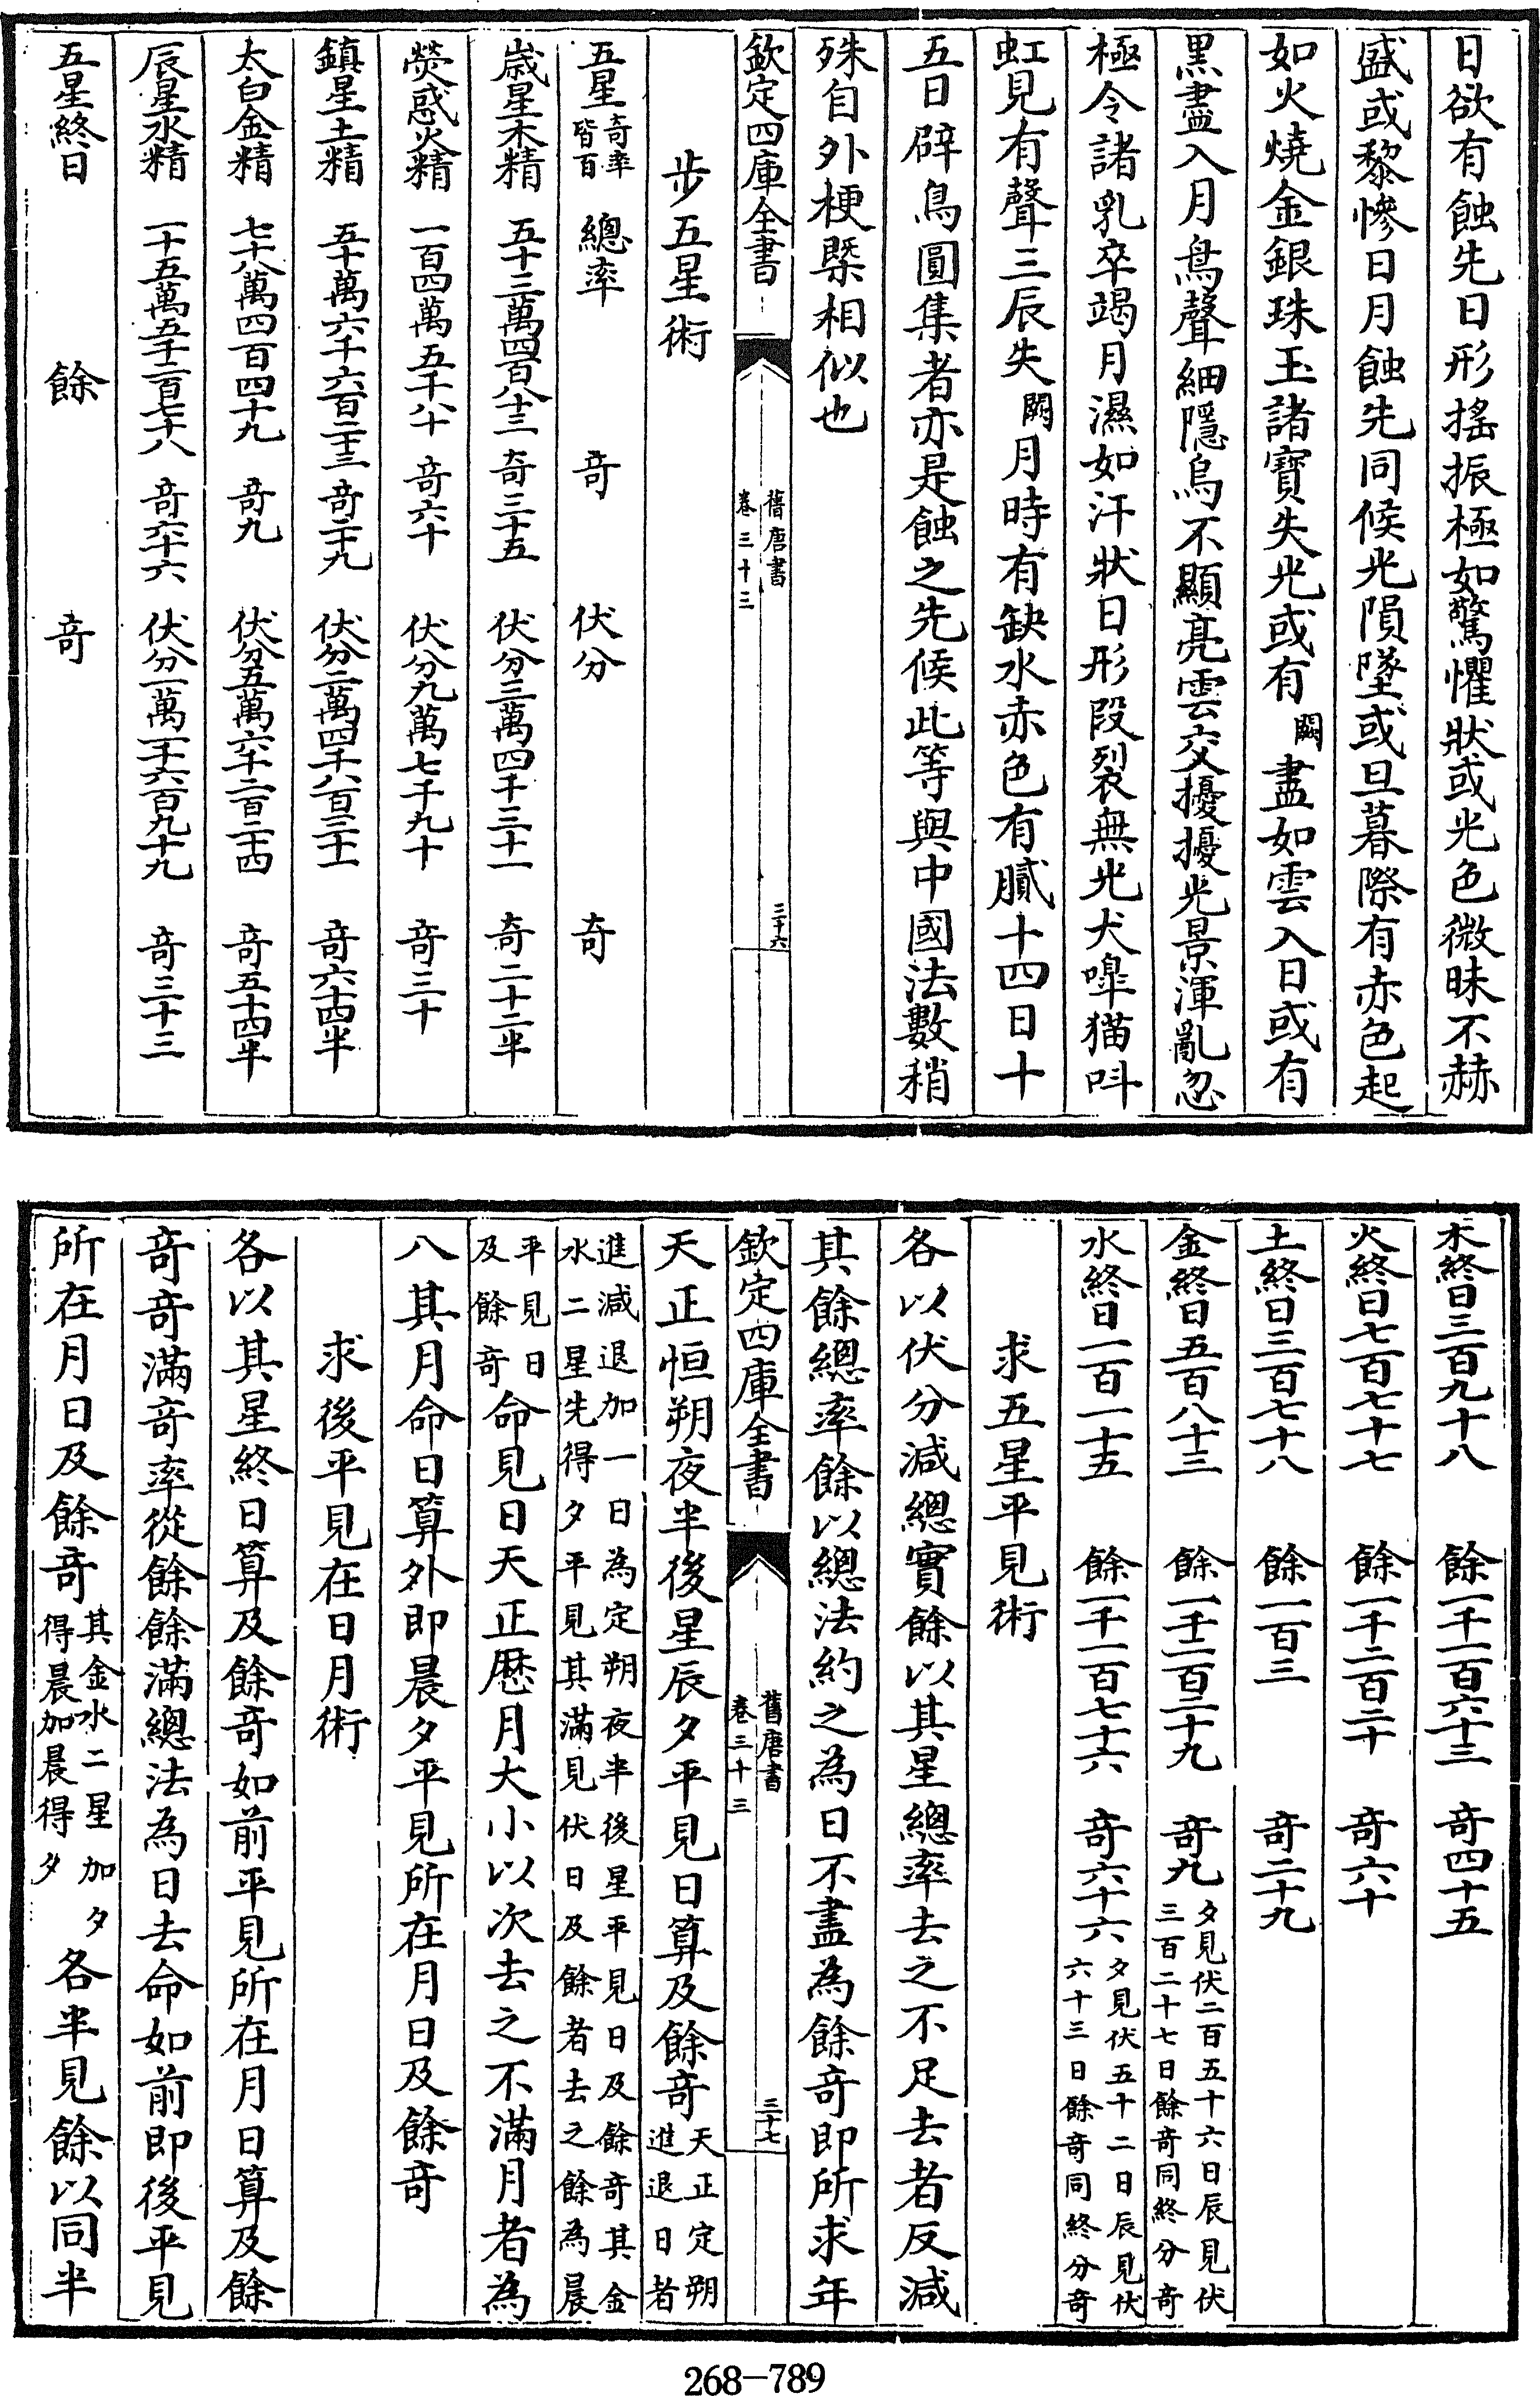 日欲有蝕先日形搖振極如驚懼狀或光色微昧不赫
盛或黎慘日月蝕先同候光隕墜或旦暮際有赤色起
如火燒金銀珠玉諸寶失光或有闕盡如雲入日或有
黑盡入月鳥聲細隱鳥不顯亮雲交擾擾光景渾亂忽
極令諸乳卒竭月濕如汗狀日形段裂無光犬嘷猫呌
虹見有聲三辰失闕月時有缺水赤色有膩十四日十
五日辟鳥圓集者亦是蝕之先候此等與中國法數稍
殊自外梗槩相似也
欽定四庫全書
舊唐書
卷三十三
三十六
步五星術
五星奇率皆百 總率 奇 伏分 奇
歲星木精 五十三萬四百八十三 奇三十五 伏分三萬四千三十一 奇二十二半
熒惑火精 一百四萬五千八十 奇六十 伏分九萬七千九十 奇三十
鎮星土精 五十萬六千六百二十三 奇二十九 伏分二萬四千八百三十一 奇六十四半
太白金精 七十八萬四百四十九 奇九 伏分五萬六千二百二十四 奇五十四半
辰星水精 一十五萬五千二百七十八 奇六十六 伏分一萬一千六百九十九 奇三十三
五星終日 餘 奇
木終日三百九十八 餘一千一百六十三 奇四十五
火終日七百七十七 餘一千二百二十 奇六十
土終日三百七十八 餘一百三 奇二十九
金終日五百八十三 餘一千二百二十九 奇九 夕見伏二百五十六日辰見伏三百二十七日餘奇同終分奇
水終日一百一十五 餘一千一百七十六 奇六十六 夕見伏五十二日辰見伏六十三日餘奇同終分奇
求五星平見術
各以伏分減總實餘以其星總率去之不足去者反減
其餘總率餘以總法約之為日不盡為餘奇即所求年
欽定四庫全書
舊唐書
卷三十三
三十七
天正恒朔夜半後星辰夕平見日算及餘奇天正定朔進退日者
進減退加一日為定朔夜半後星平見日及餘奇其金水二星先得夕平見其滿見伏日及餘者去之餘為晨
平見日及餘奇命見日天正厯月大小以次去之不滿月者為
八其月命日算外即晨夕平見所在月日及餘奇
求後平見在日月術
各以其星終日算及餘奇如前平見所在月日算及餘
奇奇滿奇率從餘餘滿總法為日去命如前即後平見
所在月日及餘奇其金水二星加夕得晨加晨得夕各半見餘以同半
268-789